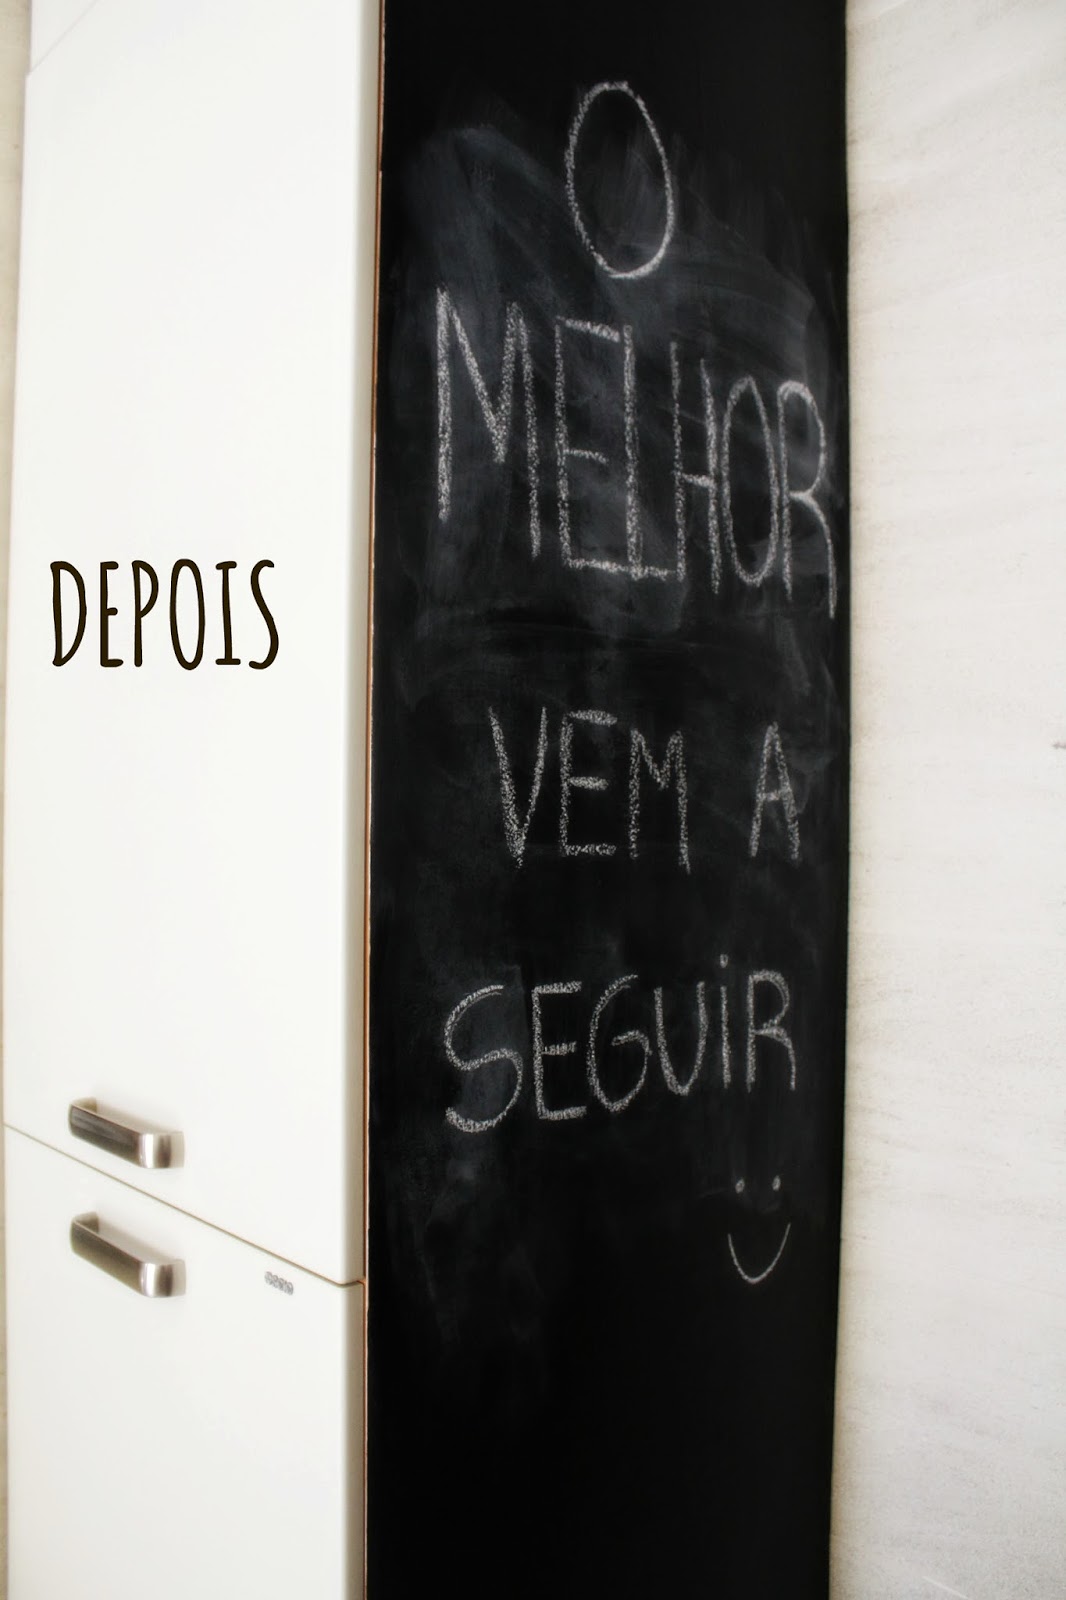 DEPOIS
O
MELHOR
VEM A
SEGUIR